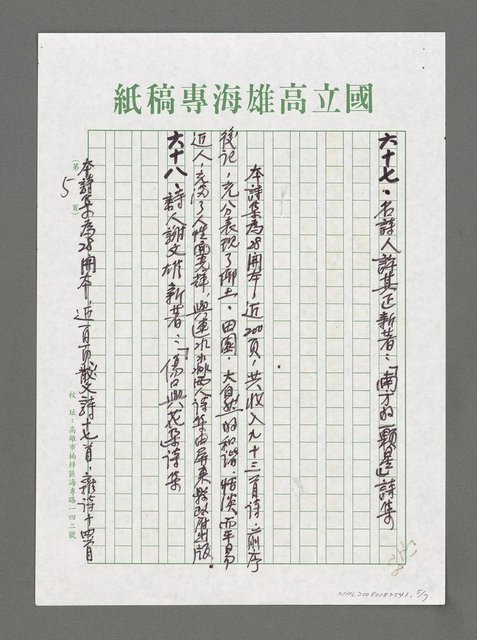 國立高雄海專稿紙
六十七、名詩人許其正新著：「南方的一顆星」詩集
本詩集為28開本，近200頁，共收入九十三首詩，前序
後記，充分表現了鄉土、田園、大自然的和諧，恬淡而平易
近人，充滿了人性面光輝，與連水淼兩人詩集由屏東縣政府出版。
六十八、詩人謝文雄新著：「傷口與花朵」詩集
本詩集為28開本，近百頁，散文詩十七首，雜詩十四首
（第 5 頁）
校址：高雄市楠梓區海專路一四二號
NMTL20080182541, 5/7